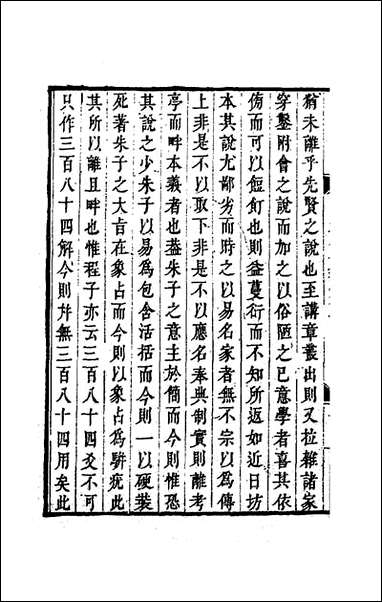 猶未離乎先賢之說也至講章叢出則又拉雜諸家
穿鑿附會之說而加之以俗陋之已意學者喜其依
傍而可以餖飣也則益蔓衍而不知所返如近日坊
本其說尤鄙劣而時之以易名家者無不宗以爲傳
上非是不以取下非是不以應名奉典制實則離考
亭而畔本義者也葢朱子之意主於簡而今則惟恐
其說之少朱子以易爲包含活括而今則一以硬裝
死著朱子之大旨在象占而今則以象占爲騈疣此
其所以離且畔也惟程子亦云三百八十四爻不可
只作三百八十四解今則幷無三百八十四用矣此